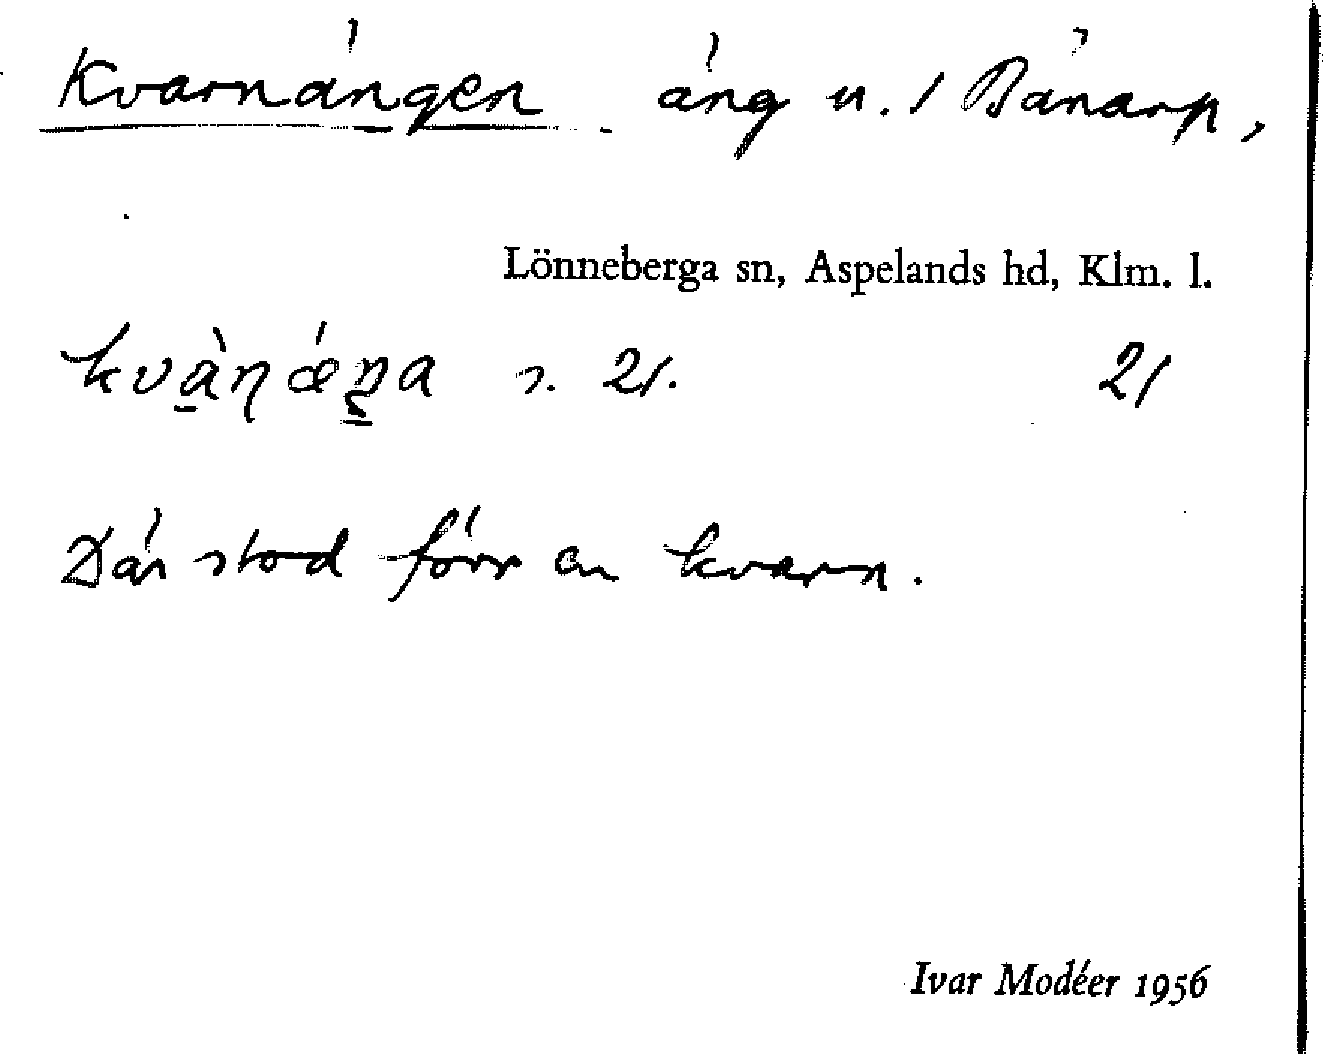 Kvarnängen äng u. / Bänarp,
Lönneberga sn, Aspelands hd, Klm. l.
kvàɳǽŋa s. 21. 21
Där stod förr en kvarn.
Ivar Modéer 1956